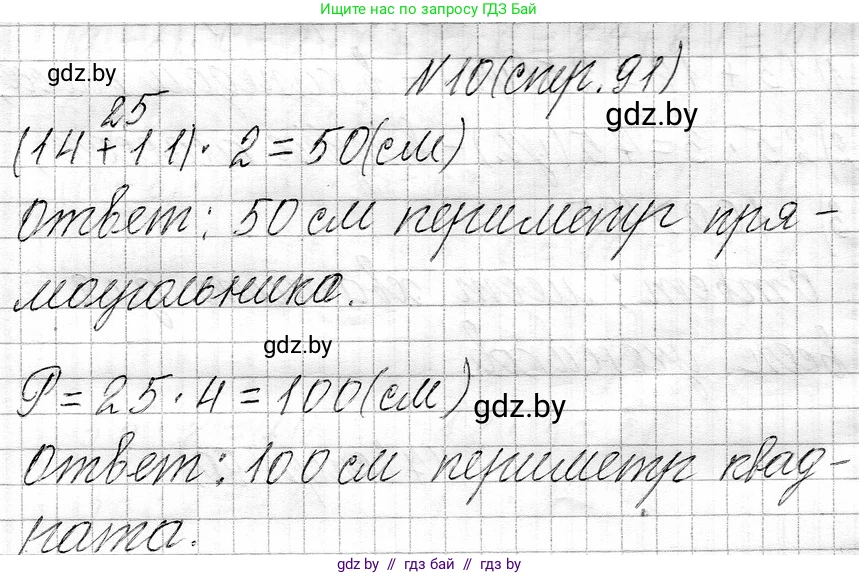 Ищите нас по запросу ГДЗ Бай
gdz.by
N10(стр.91)
gdz.by
25
(14+11)·2=50(см)
Ответ: 50 см периметр пря-
моугольника.
gdz.by
P=25·4=100(см)
gdz.by
Ответ: 100 см периметр квад-
рата.
gdz.by // гдз бай // гдз by